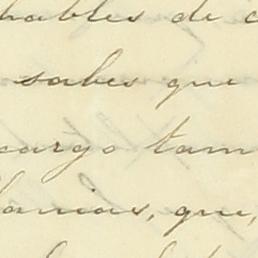 hables de c
sabes que
cargo tam
lanias, que,